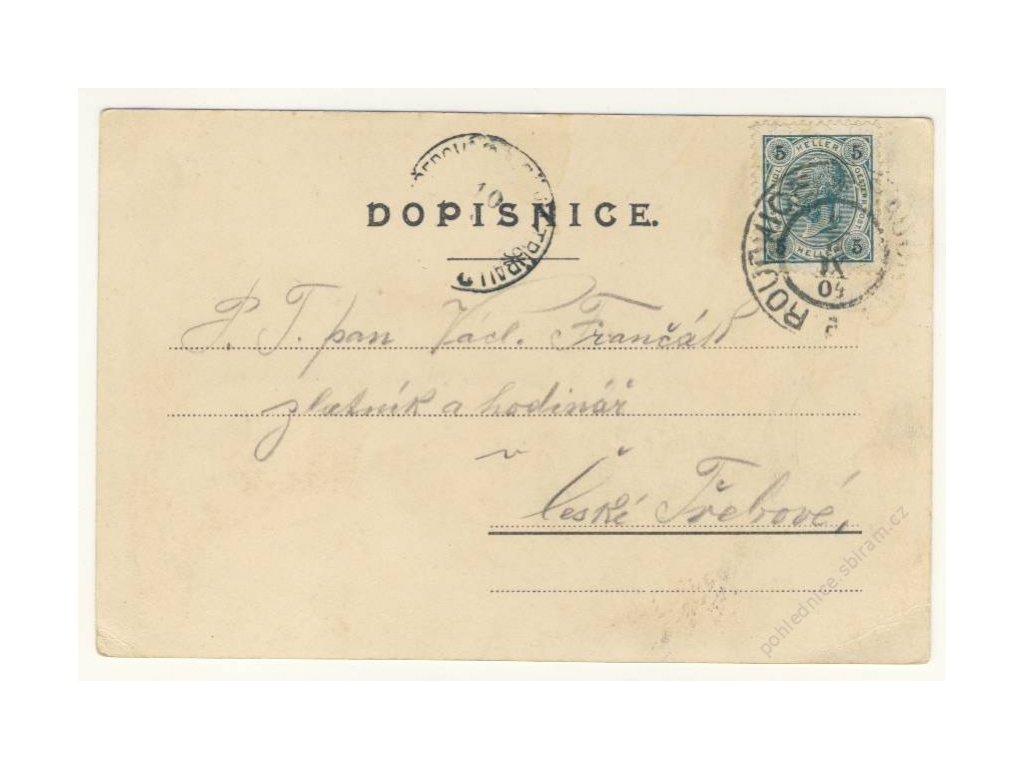 DOPISNICE.
5 HELLER 5
5 HELLER 5
ROUD
IX
04
10
P. T. pan Václ. Frančák
zlatník a hodinář
v
České Třebové,
pohlednice.sbiram.cz